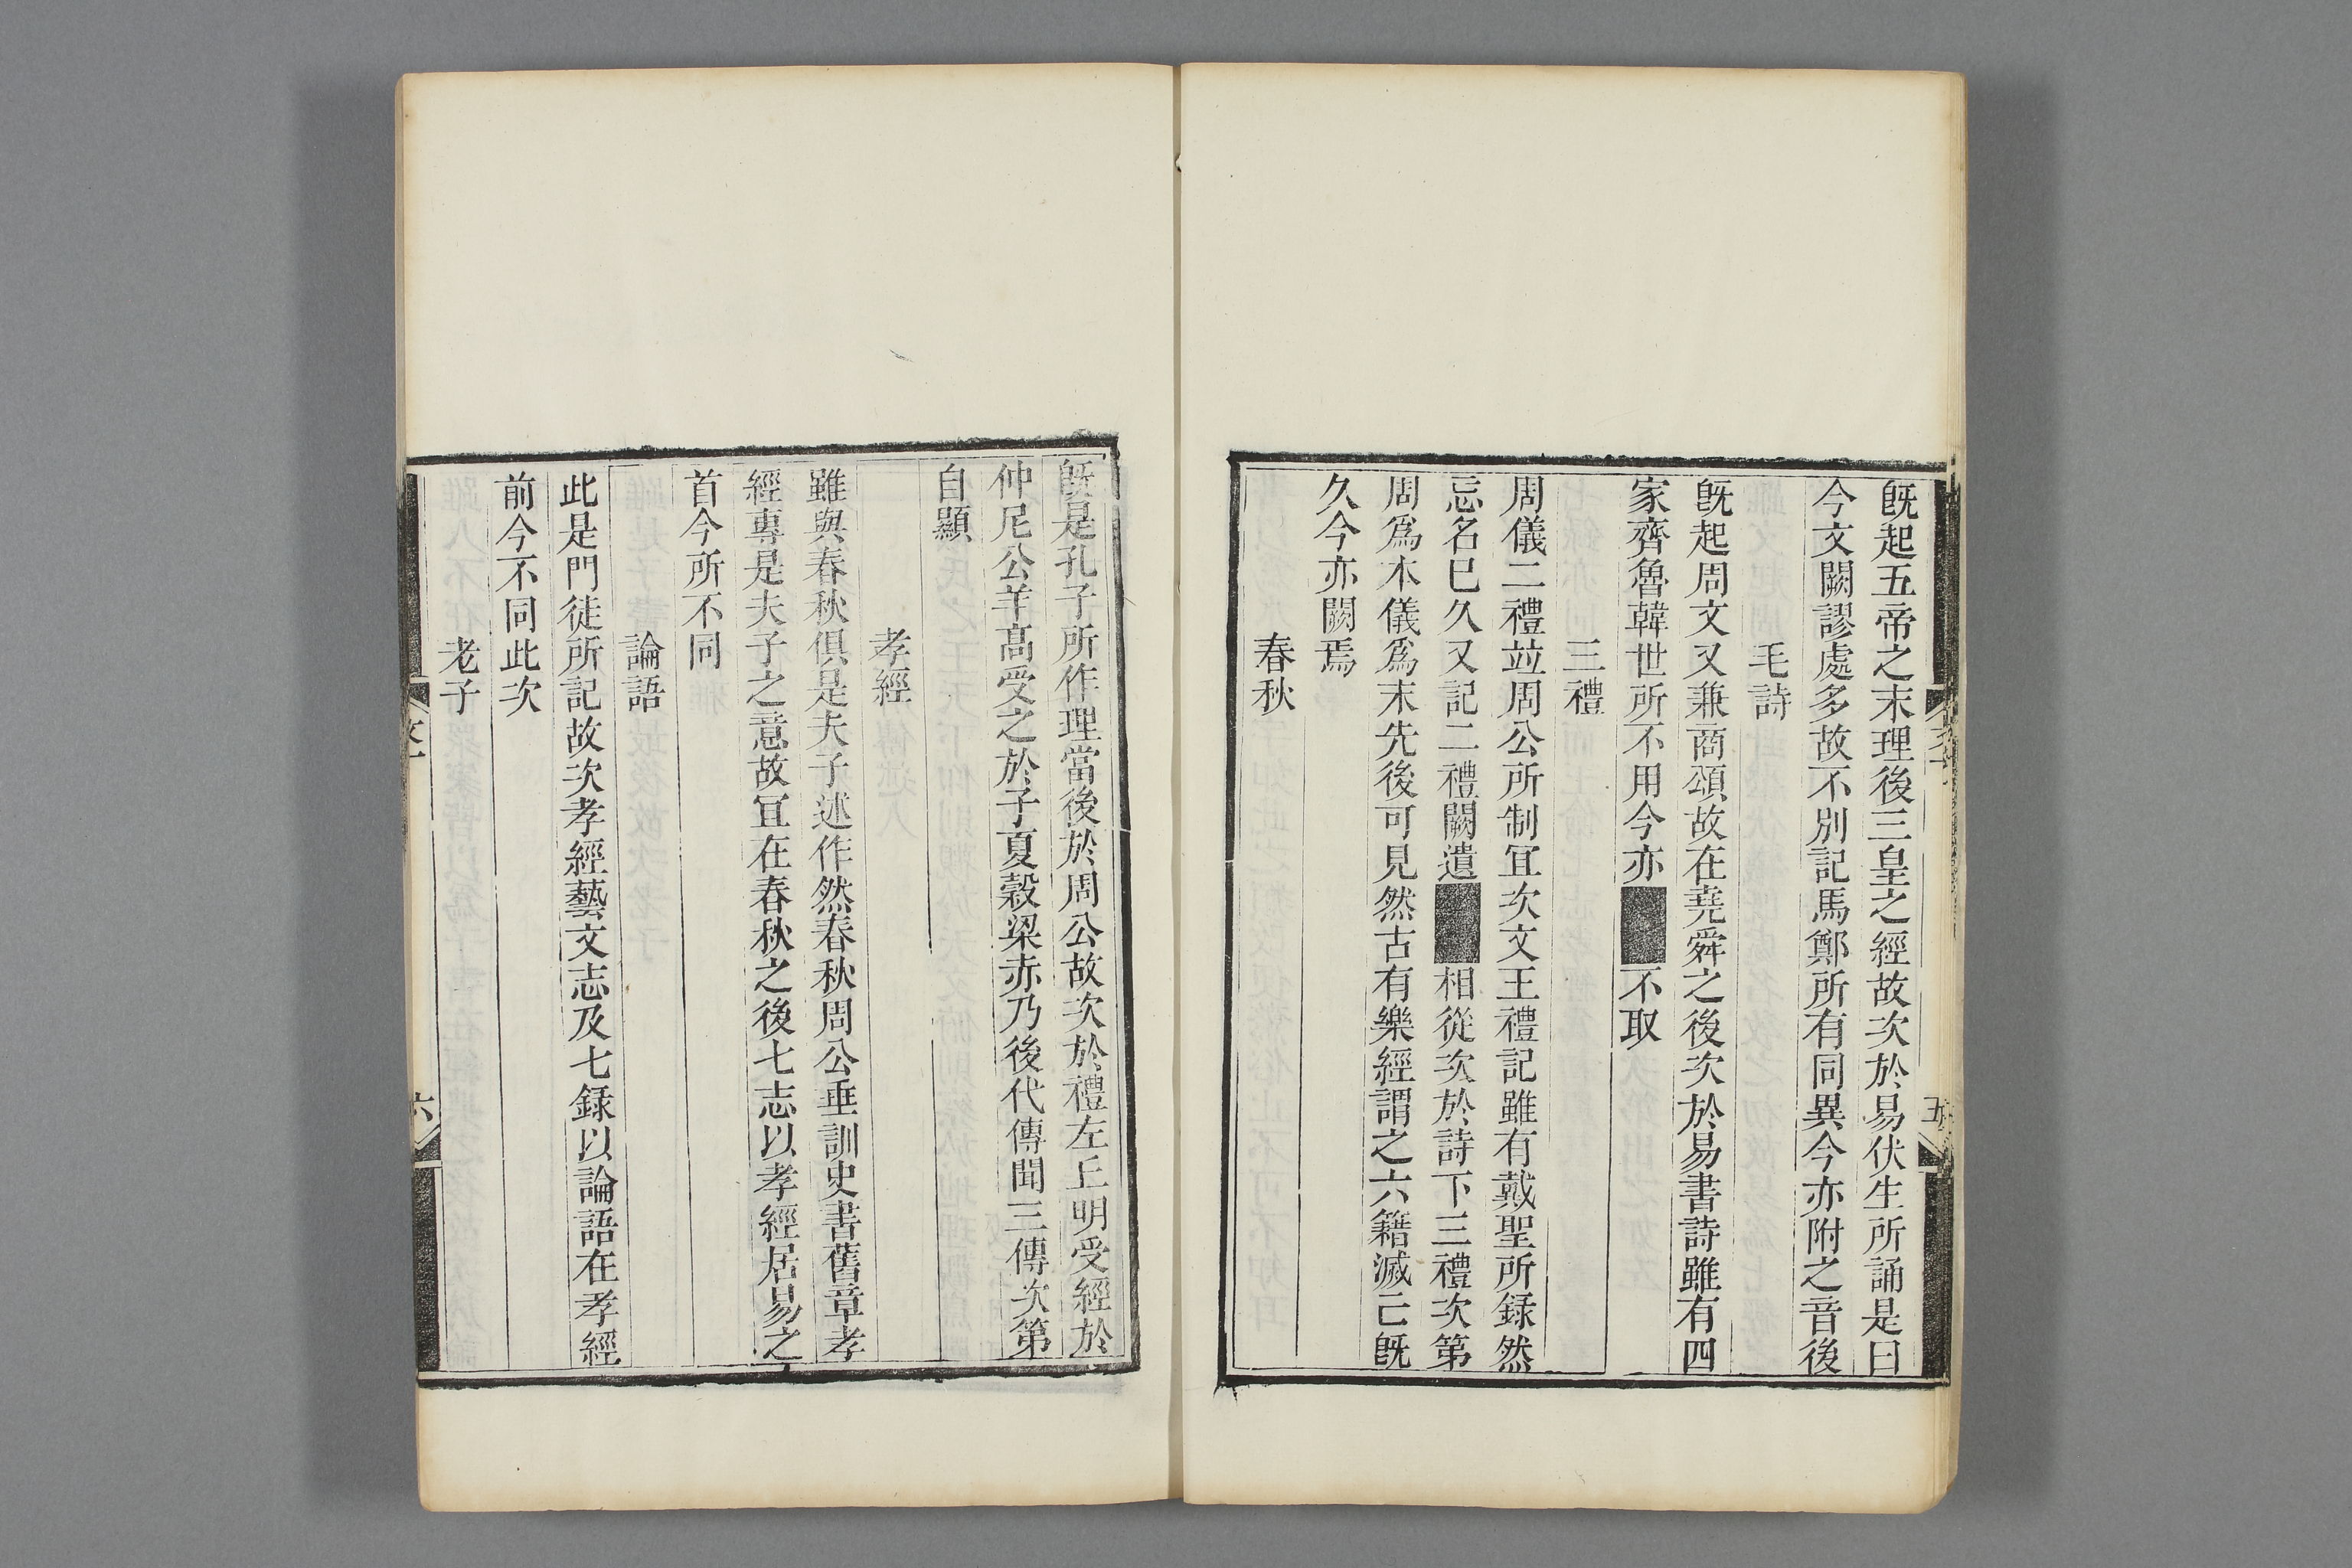 旣起五帝之末理後三皇之經故次於易伏生所誦是曰
今文闕謬處多故不別記馬鄭所有同異今亦附之音後
毛詩
旣起周文又兼商頌故在堯舜之後次於易書詩雖有四
家齊魯韓世所不用今亦不取
三禮
周儀二禮竝周公所制冝次文王禮記雖有戴聖所録然
忘名巳久又記二禮闕遺相從次於詩下三禮次第
周爲本儀爲末先後可見然古有樂經謂之六籍滅亡旣
久今亦闕焉
春秋
旣是孔子所作理當後於周公故次於禮左丘明受經於
仲尼公羊髙受之於子夏穀梁赤乃後代傳聞三傳次第
自顯
孝經
雖與春秋俱是夫子述作然春秋周公垂訓史書舊章孝
經專是夫子之意故冝在春秋之後七志以孝經居易之
首今所不同
論語
此是門徒所記故次孝經藝文志及七録以論語在孝經
前今不同此次
老子
五
六